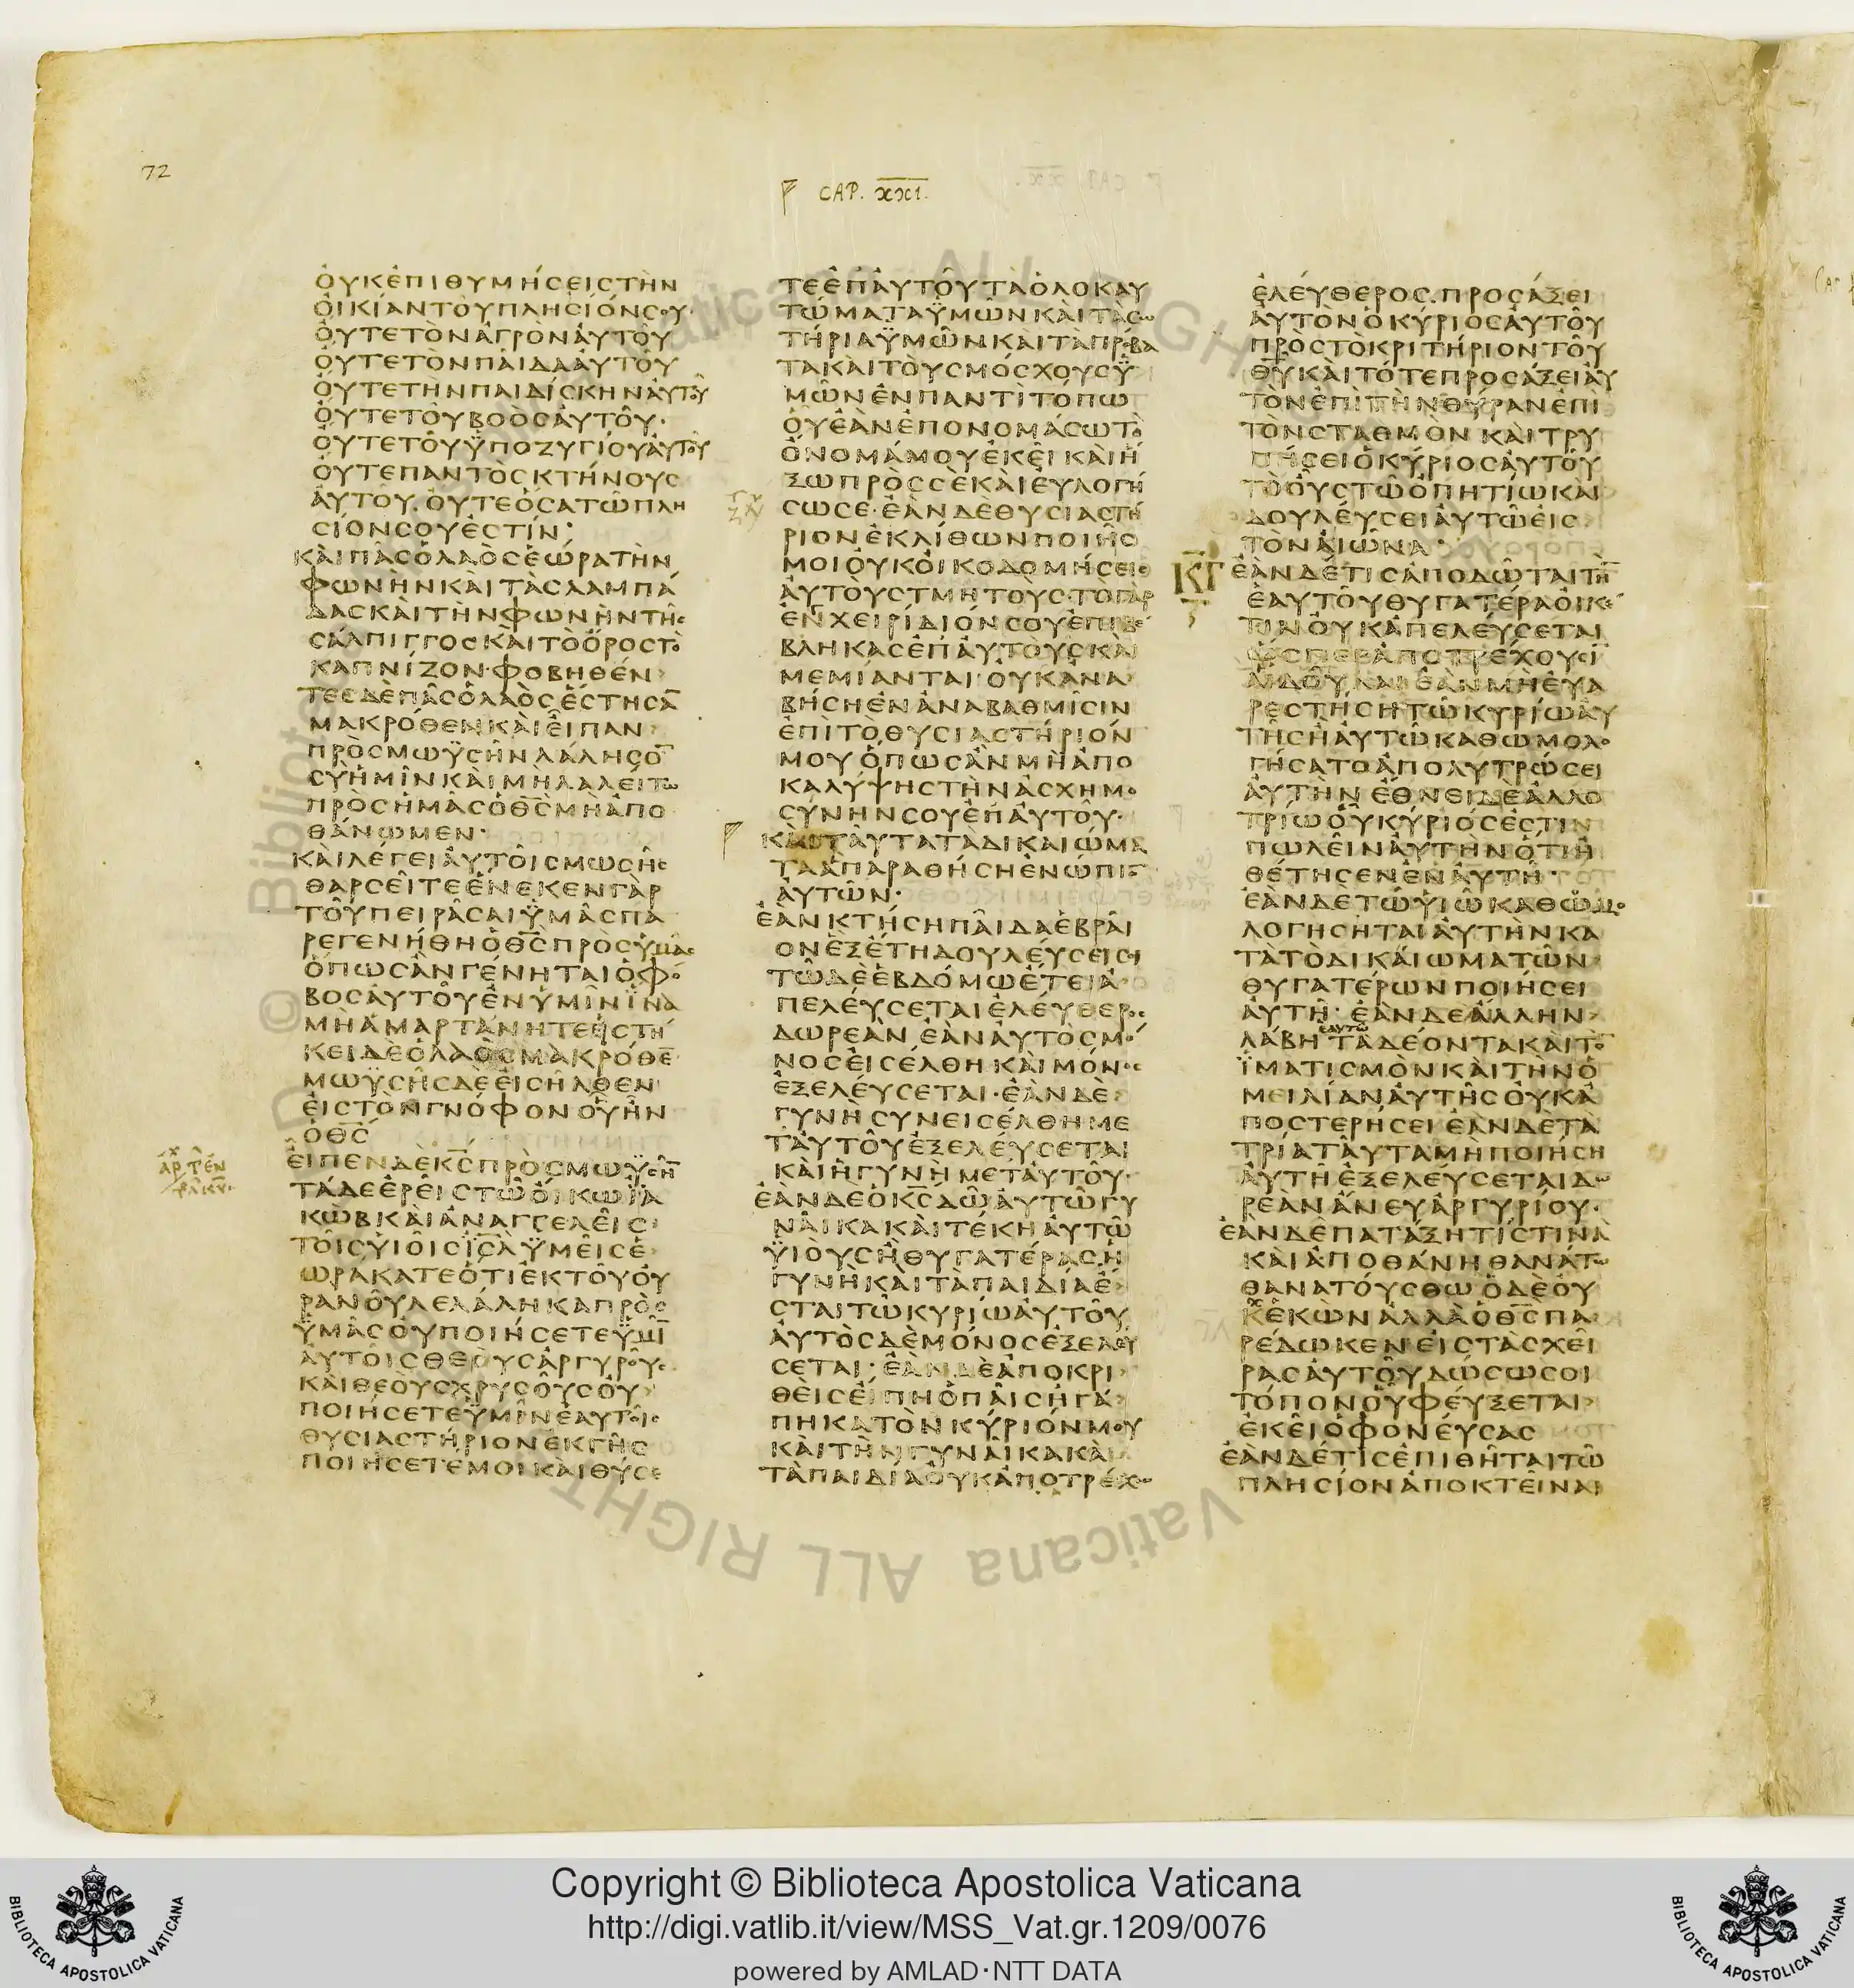 72
CAP. XXI.
ΟΥΚΕΠΙΘΥΜΗCΕΙCΤΗΝ
ΟΙΚΙΑΝΤΟΥΠΛΗCΙΟΝCΟΥ·
ΟΥΤΕΤΟΝΑΓΡΟΝΑΥΤΟΥ
ΟΥΤΕΤΟΝΠΑΙΔΑΑΥΤΟΥ
ΟΥΤΕΤΗΝΠΑΙΔΙCΚΗΝΑΥΤΟΥ
ΟΥΤΕΤΟΥΒΟΟCΑΥΤΟΥ·
ΟΥΤΕΤΟΥΫΠΟΖΥΓΙΟΥΑΥΤΟΥ
ΟΥΤΕΠΑΝΤΟCΚΤΗΝΟΥC
ΑΥΤΟΥ·ΟΥΤΕΟCΑΤΩΠΛΗ
CΙΟΝCΟΥΕCΤΙΝ:
ΚΑΙΠΑCΟΛΑΟCΕΩΡΑΤΗΝ
ΦΩΝΗΝΚΑΙΤΑCΛΑΜΠΑ
ΔΑCΚΑΙΤΗΝΦΩΝΗΝΤΗC
CΑΛΠΙΓΓΟCΚΑΙΤΟΟΡΟCΤΟ
ΚΑΠΝΙΖΟΝ·ΦΟΒΗΘΕΝ
ΤΕCΔΕΠΑCΟΛΑΟCΕCΤΗCΑ̅
ΜΑΚΡΟΘΕΝΚΑΙΕΙΠΑΝ
ΠΡΟCΜΩΫCΗΝΛΑΛΗCΟ̅
CΥΗΜΙΝΚΑΙΜΗΛΑΛΕΙΤΩ
ΠΡΟCΗΜΑCΟΘ̅C̅ΜΗΑΠΟ
ΘΑΝΩΜΕΝ·
ΚΑΙΛΕΓΕΙΑΥΤΟΙCΜΩCΗC
ΘΑΡCΕΙΤΕΕΝΕΚΕΝΓΑΡ
ΤΟΥΠΕΙΡΑCΑΙΫΜΑCΠΑ
ΡΕΓΕΝΗΘΗΟΘ̅C̅ΠΡΟCΥΜΑC
ΟΠΩCΑΝΓΕΝΗΤΑΙΟΦΟ
ΒΟCΑΥΤΟΥΕΝΥΜΙΝΪΝΑ
ΜΗΑΜΑΡΤΑΝΗΤΕΕΙCΤΗ
ΚΕΙΔΕΟΛΑΟCΜΑΚΡΟΘΕ̅
ΜΩΫCΗCΔΕΕΙCΗΛΘΕΝ
ΕΙCΤΟΝΓΝΟΦΟΝΟΥΗΝ
ΟΘ̅C̅
ΕΙΠΕΝΔΕΚ̅C̅ΠΡΟCΜΩΫCΗ̅
ΤΑΔΕΕΡΕΙCΤΩΟΙΚΩΪΑ
ΚΩΒΚΑΙΑΝΑΓΓΕΛΕΙC
ΤΟΙCΥΙΟΙCΙ̅C̅Λ̅ΫΜΕΙCΕ
ΩΡΑΚΑΤΕΟΤΙΕΚΤΟΥΟΥ
ΡΑΝΟΥΛΕΛΑΛΗΚΑΠΡΟC
ΫΜΑCΟΥΠΟΙΗCΕΤΕΫΜΙ̅
ΑΥΤΟΙCΘΕΟΥCΑΡΓΥΡΟΥC
ΚΑΙΘΕΟΥCΧΡΥCΟΥCΟΥ
ΠΟΙΗCΕΤΕΫΜΙΝΕΑΥΤΟΙC
ΘΥCΙΑCΤΗΡΙΟΝΕΚΓΗC
ΠΟΙΗCΕΤΕΜΟΙΚΑΙΘΥCΕ
ΤΕΕΠΑΥΤΟΥΤΑΟΛΟΚΑΥ
ΤΩΜΑΤΑΫΜΩΝΚΑΙΤΑCΩ
ΤΗΡΙΑΫΜΩΝΚΑΙΤΑΠΡΟΒΑ
ΤΑΚΑΙΤΟΥCΜΟCΧΟΥCΫ
ΜΩΝΕΝΠΑΝΤΙΤΟΠΩ
ΟΥΕΑΝΕΠΟΝΟΜΑCΩΤΟ
ΟΝΟΜΑΜΟΥΕΚΕΙΚΑΙΗ
ΞΩΠΡΟCCΕΚΑΙΕΥΛΟΓΗ
CΩCΕ·ΕΑΝΔΕΘΥCΙΑCΤΗ
ΡΙΟΝΕΚΛΙΘΩΝΠΟΙΗC
ΜΟΙΟΥΚΟΙΚΟΔΟΜΗCΕΙC
ΑΥΤΟΥCΤΜΗΤΟΥCΤΟΓΑΡ
ΕΝΧΕΙΡΙΔΙΟΝCΟΥΕΠΙΒΕ
ΒΛΗΚΑCΕΠΑΥΤΟΥCΚΑΙ
ΜΕΜΙΑΝΤΑΙ·ΟΥΚΑΝΑ
ΒΗCΗΕΝΑΝΑΒΑΘΜΙCΙΝ
ΕΠΙΤΟΘΥCΙΑCΤΗΡΙΟΝ
ΜΟΥΟΠΩCΑΝΜΗΑΠΟ
ΚΑΛΥΨΗCΤΗΝΑCΧΗΜΟ
CΥΝΗΝCΟΥΕΠΑΥΤΟΥ·
ΚΑΙΤΑΥΤΑΤΑΔΙΚΑΙΩΜΑ
ΤΑΑΠΑΡΑΘΗCΗΕΝΩΠΙΟ̅
ΑΥΤΩΝ·
ΕΑΝΚΤΗCΗΠΑΙΔΑΕΒΡΑΙ
ΟΝΕΞΕΤΗΔΟΥΛΕΥCΕΙCΟΙ
ΤΩΔΕΕΒΔΟΜΩΕΤΕΙΑ
ΠΕΛΕΥCΕΤΑΙΕΛΕΥΘΕΡΟC
ΔΩΡΕΑΝΕΑΝΑΥΤΟCΜΟ
ΝΟCΕΙCΕΛΘΗΚΑΙΜΟΝΟC
ΕΞΕΛΕΥCΕΤΑΙ·ΕΑΝΔΕ
ΓΥΝΗCΥΝΕΙCΕΛΘΗΜΕ
ΤΑΥΤΟΥΕΞΕΛΕΥCΕΤΑΙ
ΚΑΙΗΓΥΝΗΜΕΤΑΥΤΟΥ·
ΕΑΝΔΕΟΚ̅C̅ΔΩΑΥΤΩΓΥ
ΝΑΙΚΑΚΑΙΤΕΚΗΑΥΤΩ
ΫΙΟΥCΗΘΥΓΑΤΕΡΑCΗ
ΓΥΝΗΚΑΙΤΑΠΑΙΔΙΑΕ
CΤΑΙΤΩΚΥΡΙΩΑΥΤΟΥ
ΑΥΤΟCΔΕΜΟΝΟCΕΞΕΛΕΥ
CΕΤΑΙ·ΕΑΝΔΕΑΠΟΚΡΙ
ΘΕΙCΕΙΠΗΟΠΑΙCΗΓΑ
ΠΗΚΑΤΟΝΚΥΡΙΟΝΜΟΥ
ΚΑΙΤΗΝΓΥΝΑΙΚΑΚΑΙ
ΤΑΠΑΙΔΙΑΟΥΚΑΠΟΤΡΕΧΩ
ΕΛΕΥΘΕΡΟC·ΠΡΟCΑΞΕΙ
ΑΥΤΟΝΟΚΥΡΙΟCΑΥΤΟΥ
ΠΡΟCΤΟΚΡΙΤΗΡΙΟΝΤΟΥ
Θ̅Υ̅ΚΑΙΤΟΤΕΠΡΟCΑΞΕΙΑΥ
ΤΟΝΕΠΙΤΗΝΘΥΡΑΝΕΠΙ
ΤΟΝCΤΑΘΜΟΝΚΑΙΤΡΥ
ΠΗCΕΙΟΚΥΡΙΟCΑΥΤΟΥ
ΤΟΟΥCΤΩΟΠΗΤΙΩΚΑΙ
ΔΟΥΛΕΥCΕΙΑΥΤΩΕΙC
ΤΟΝΑΙΩΝΑ·
ΚΓ
ΕΑΝΔΕΤΙCΑΠΟΔΩΤΑΙΤΗ̅
ΕΑΥΤΟΥΘΥΓΑΤΕΡΑΟΙΚΕ
ΤΙΝΟΥΚΑΠΕΛΕΥCΕΤΑΙ
ΩCΠΕΡΑΠΟΤΡΕΧΟΥCΙ
ΑΙΔΟΥΛΑΙΕΑΝΜΗΕΥΑ
ΡΕCΤΗCΗΤΩΚΥΡΙΩΑΥ
ΤΗCΗΑΥΤΩΚΑΘΩΜΟΛΟ
ΓΗCΑΤΟΑΠΟΛΥΤΡΩCΕΙ
ΑΥΤΗΝΕΘΝΕΙΔΕΑΛΛΟ
ΤΡΙΩΟΥΚΥΡΙΟCΕCΤΙΝ
ΠΩΛΕΙΝΑΥΤΗΝΟΤΙΗ
ΘΕΤΗCΕΝΕΝΑΥΤΗ·
ΕΑΝΔΕΤΩΥΙΩΚΑΘΟΜΟ
ΛΟΓΗCΗΤΑΙΑΥΤΗΝΚΑ
ΤΑΤΟΔΙΚΑΙΩΜΑΤΩΝ
ΘΥΓΑΤΕΡΩΝΠΟΙΗCΕΙ
ΑΥΤΗ·ΕΑΝΔΕΑΛΛΗΝ
ΕΑΥΤΩ
ΛΑΒΗΤΑΔΕΟΝΤΑΚΑΙΤΟ̅
ΪΜΑΤΙCΜΟΝΚΑΙΤΗΝΟ
ΜΕΙΛΙΑΝΑΥΤΗCΟΥΚΑ
ΠΟCΤΕΡΗCΕΙΕΑΝΔΕΤΑ
ΤΡΙΑΤΑΥΤΑΜΗΠΟΙΗCΗ
ΑΥΤΗΕΞΕΛΕΥCΕΤΑΙΔΩ
ΡΕΑΝΑΝΕΥΑΡΓΥΡΙΟΥ·
ΕΑΝΔΕΠΑΤΑΞΗΤΙCΤΙΝΑ
ΚΑΙΑΠΟΘΑΝΗΘΑΝΑΤΩ
ΘΑΝΑΤΟΥCΘΩΟΔΕΟΥ
ΚΕΚΩΝΑΛΛΑΟΘ̅C̅ΠΑ
ΡΕΔΩΚΕΝΕΙCΤΑCΧΕΙ
ΡΑCΑΥΤΟΥΔΩCΩCΟΙ
ΤΟΠΟΝΟΥΦΕΥΞΕΤΑΙ
ΕΚΕΙΟΦΟΝΕΥCΑC
ΕΑΝΔΕΤΙCΕΠΙΘΗΤΑΙΤΩ
ΠΛΗCΙΟΝΑΠΟΚΤΕΙΝΑΙ
© Biblioteca Apostolica Vaticana ALL RIGHT
Copyright © Biblioteca Apostolica Vaticana
http://digi.vatlib.it/view/MSS_Vat.gr.1209/0076
powered by AMLAD·NTT DATA
BIBLIOTECA APOSTOLICA VATICANA
BIBLIOTECA APOSTOLICA VATICANA